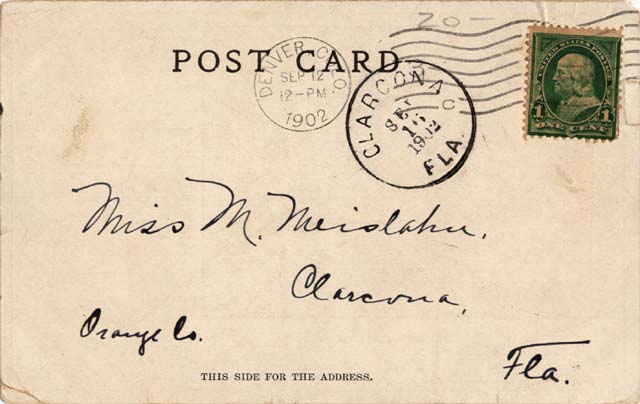 20-
POST CARD
DENVER, COLO.
SEP 12
12-PM
1902
CLARCONA
SEP
16
1902
FLA.
UNITED STATES POSTAGE
1 1
ONE CENT
Miss M. Meislahn,
Clarcona,
Orange Co.
Fla.
THIS SIDE FOR THE ADDRESS.